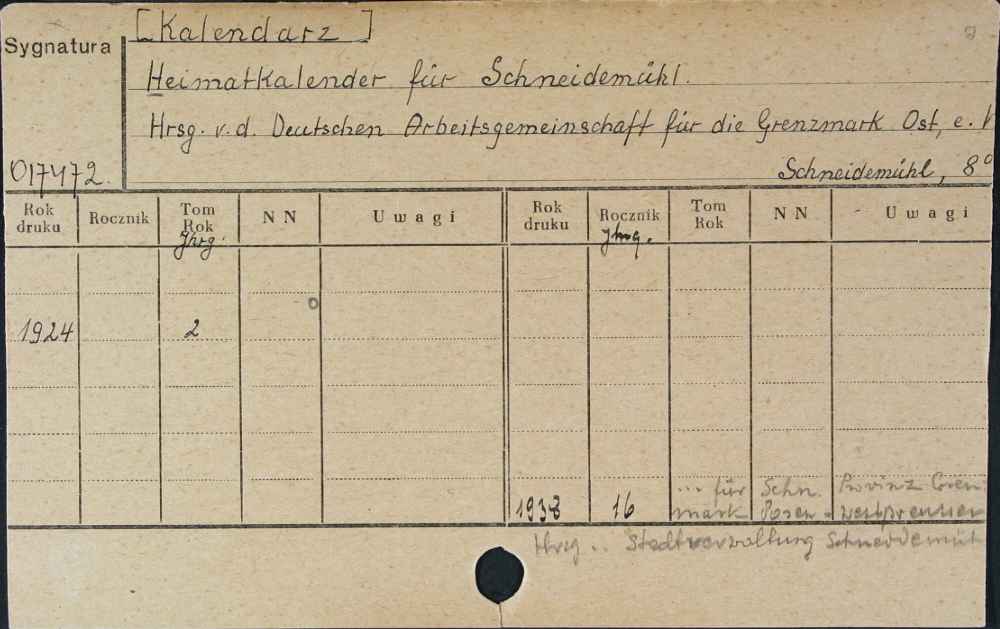 [Kalendarz]
Sygnatura
Heimatkalender für Schneidemühl.
Hrsg. v. d. Deutschen Arbeitsgemeinschaft für die Grenzmark Ost, e. V
017472.
Schneidemühl, 8°
Rok druku Rocznik Tom Rok NN Uwagi Rok druku Rocznik Tom Rok NN Uwagi
Jhrg. Jhrg.
1924 2
... für Schn. Provinz Gren-
1938 16 mark Posen - Westpreussen
Hrsg .. Stadtverwaltung Schneidemüh